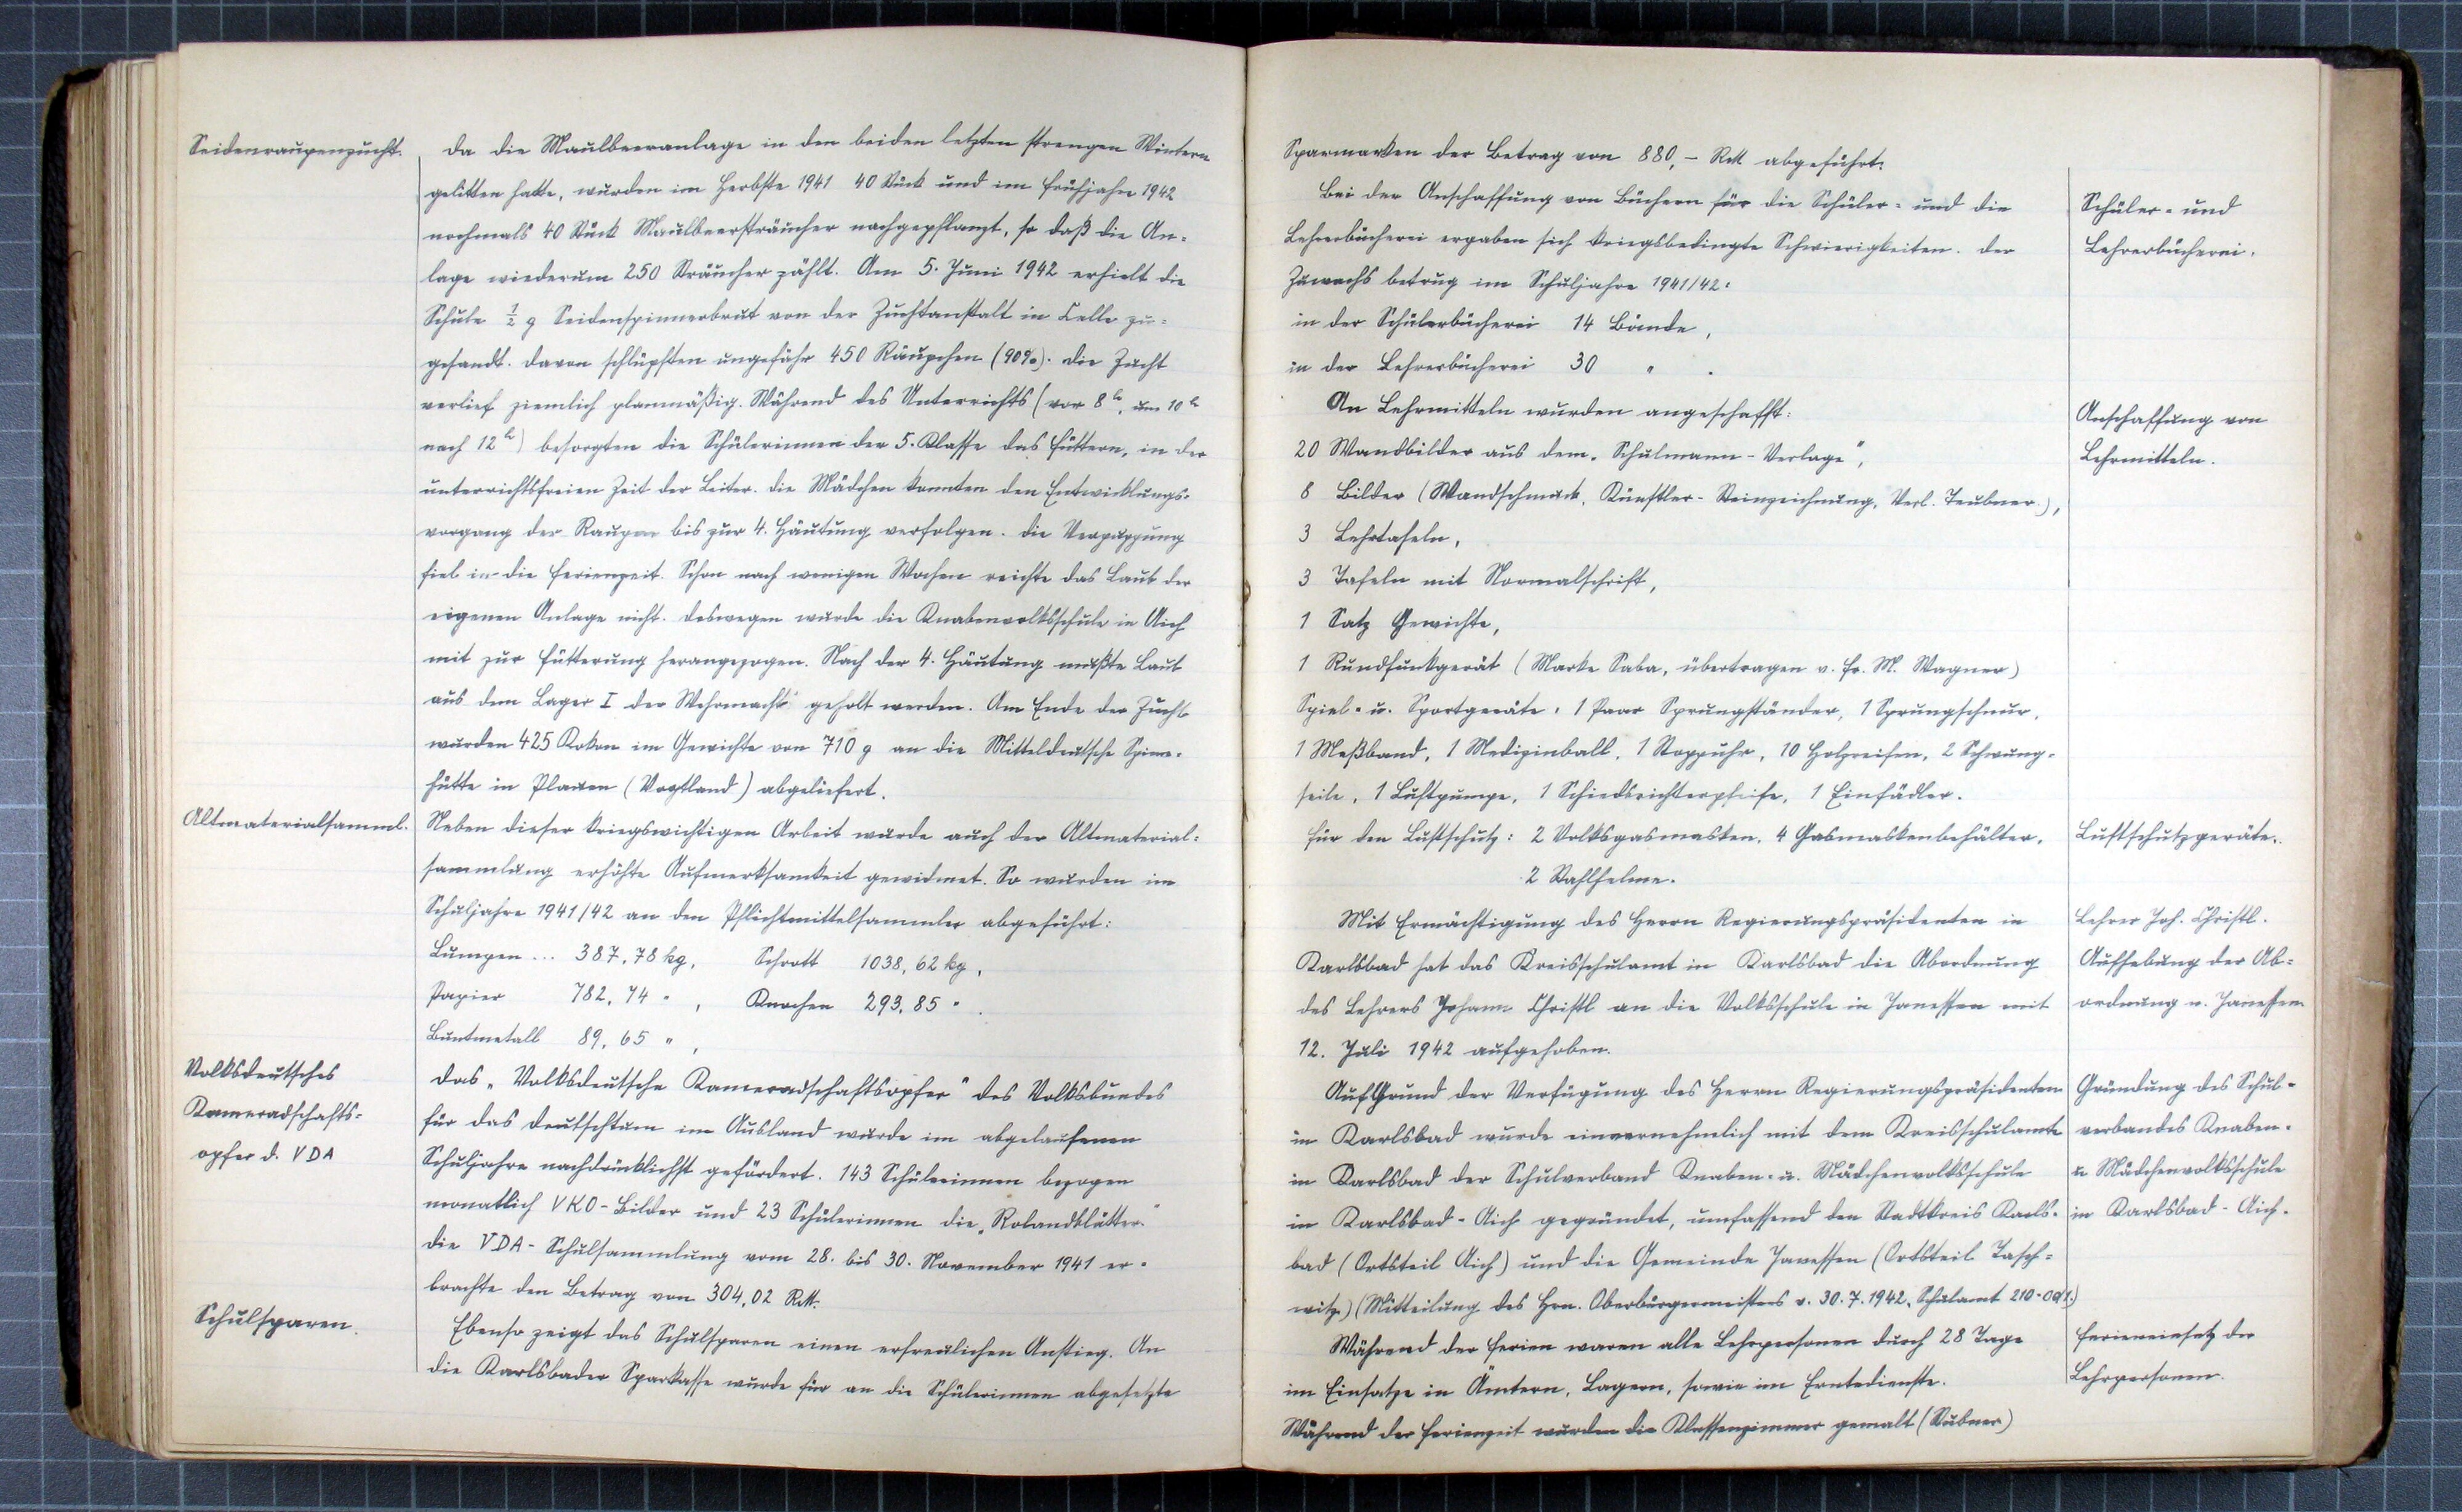 Seidenraupenzucht.
Da die Maulbeeranlage in den beiden letzten strengen Wintern
gelitten hatte, wurden im Herbste 1941 40 Stück und im Frühjahre 1942
nochmals 40 Stück Maulbeersträucher nachgepflanzt, so daß die An-
lage wiederum 250 Sträucher zählt. Am 5. Juni 1942 erhielt die
Schule ½ g Seidenspinnerbrut von der Zuchtanstalt in Celle zu-
gesandt. Davon schlüpften ungefähr 450 Räupchen (90%). Die Zucht
verlief ziemlich planmäßig. Während des Unterrichts (vor 8 h, um 10 h
nach 12 h) besorgten die Schülerinnen der 5. Klasse das Füttern, in der
unterrichtsfreien Zeit der Leiter. Die Mädchen konnten den Entwicklungs-
vorgang der Raupen bis zur 4. Häutung verfolgen. Die Verpuppung
fiel in die Ferienzeit. Schon nach wenigen Wochen reichte das Laub der
eigenen Anlage nicht. Deswegen wurde die Knabenvolksschule in Aich
mit zur Fütterung herangezogen. Nach der 4. Häutung mußte Laub
aus dem Lager I der Wehrmacht geholt werden. Am Ende der Zucht
wurden 425 Kokon im Gewichte von 710 g an die Mitteldeutsche Spinn-
hütte in Plauen (Vogtland) abgeliefert.
Altmaterialsamml.
Neben dieser kriegswichtigen Arbeit wurde auch der Altmaterial-
sammlung erhöhte Aufmerksamkeit gewidmet. So wurden im
Schuljahre 1941/42 an den Pflichtmittelsammler abgeführt:
Lumpen ... 387,78 kg, Schrott 1038,62 kg,
Papier 782,74 " , Knochen 293,85 " .
Buntmetall 89,65 " ,
Volksdeutsches
Kameradschafts-
opfer d. VDA
Das „Volksdeutsche Kameradschaftsopfer“ des Volksbundes
für das Deutschtum im Ausland wurde im abgelaufenen
Schuljahre nachdrücklichst gefördert. 143 Schülerinnen bezogen
monatlich VKO-Bilder und 23 Schülerinnen die „Rolandblätter.“
Die VDA-Schulsammlung vom 28. bis 30. November 1941 er-
brachte den Betrag von 304,02 RM.
Schulsparen.
Ebenso zeigt das Schulsparen einen erfreulichen Anstieg. An
die Karlsbader Sparkasse wurde für an die Schülerinnen abgesetzte
Sparmarken der Betrag von 880,- RM abgeführt.
Bei der Anschaffung von Büchern für die Schüler- und die
Lehrerbücherei ergaben sich kriegsbedingte Schwierigkeiten. Der
Zuwachs betrug im Schuljahre 1941/42:
in der Schülerbücherei 14 Bände,
in der Lehrerbücherei 30 " .
Schüler- und
Lehrerbücherei.
An Lehrmitteln wurden angeschafft:
20 Wandbilder aus dem „Schulmann-Verlage“,
8 Bilder (Wandschmuck, Künstler-Steinzeichnung, Verl. Teubner.),
3 Lehrtafeln,
3 Tafeln mit Normalschrift,
1 Satz Gewichte,
1 Rundfunkgerät (Marke Saba, übertragen v. Fr. M. Wagner)
Spiel- u. Sportgeräte: 1 Paar Sprungständer, 1 Sprungschnur,
1 Meßband, 1 Medizinball, 1 Stoppuhr, 10 Holzreifen, 2 Schwung-
seile, 1 Luftpumpe, 1 Schiedsrichterpfeife, 1 Einfädler.
Anschaffung von
Lehrmitteln.
Für den Luftschutz: 2 Volksgasmasken, 4 Gasmaskenbehälter,
2 Stahlhelme.
Luftschutzgeräte.
Mit Ermächtigung des Herrn Regierungspräsidenten in
Karlsbad hat das Kreisschulamt in Karlsbad die Abordnung
des Lehrers Johann Christl an die Volksschule in Janessen mit
12. Juli 1942 aufgehoben.
Lehrer Joh. Christl.
Aufhebung der Ab-
ordnung n. Janessen
Auf Grund der Verfügung des Herrn Regierungspräsidenten
in Karlsbad wurde einvernehmlich mit dem Kreisschulamte
in Karlsbad der Schulverband Knaben- u. Mädchenvolksschule
in Karlsbad-Aich gegründet, umfassend den Stadtkreis Karls-
bad (Ortsteil Aich) und die Gemeinde Janessen (Ortsteil Tasch-
witz) (Mitteilung des Hrn. Oberbürgermeisters v. 30.7.1942, Schulamt 210-00/1.)
Gründung des Schul-
verbandes Knaben-
u Mädchenvolksschule
in Karlsbad-Aich.
Während der Ferien waren alle Lehrpersonen durch 28 Tage
im Einsatze in Ämtern, Lagern, sowie im Erntedienste.
Während der Ferienzeit wurden die Klassenzimmer gemalt (Stubner)
Ferieneinsatz der
Lehrpersonen.